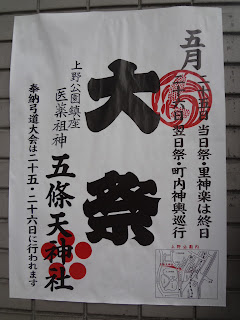 五月
二十五日当日祭・里神楽は終日
二十六日翌日祭・町内神輿巡行
大祭
上野公園鎮座
医薬祖神
五條天神社
奉納弓道大会は二十五・二十六日に行われます
上野公園内